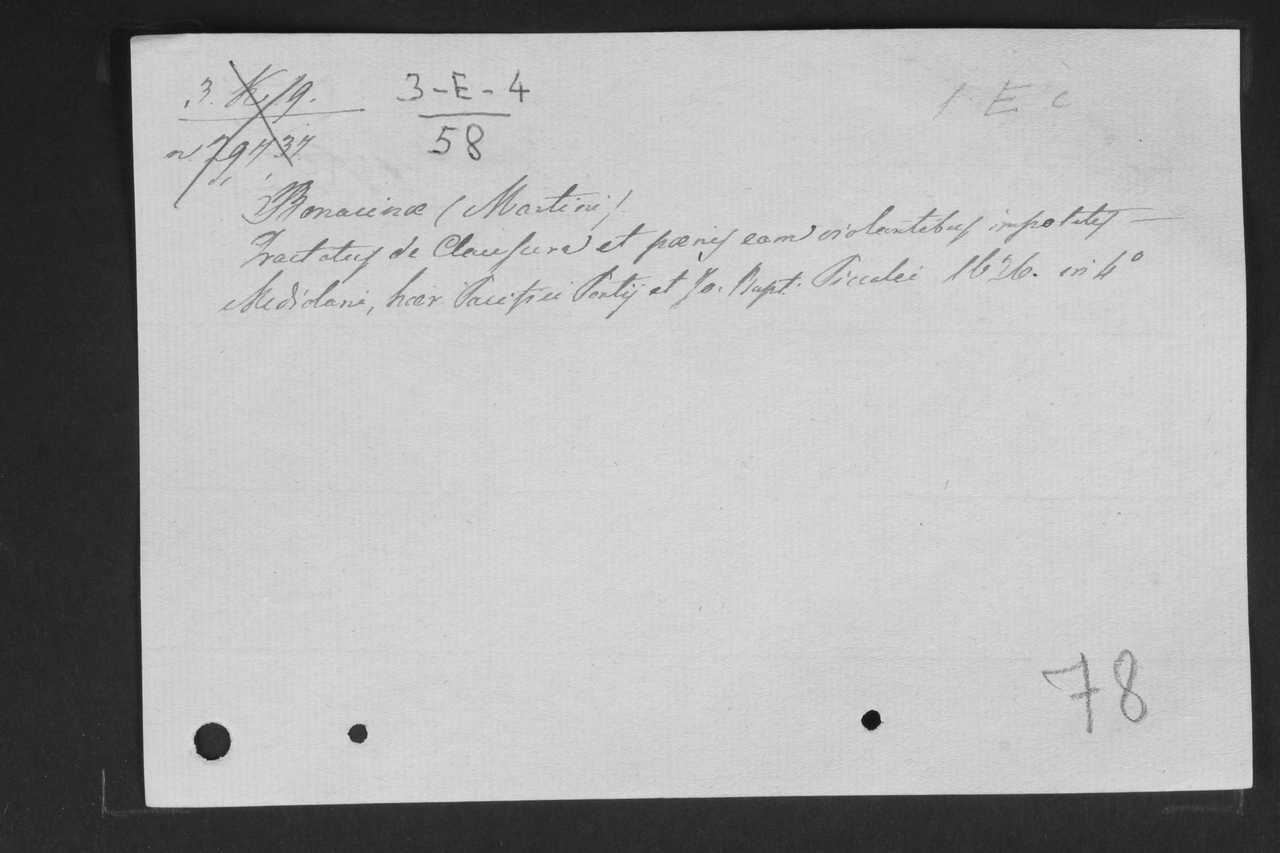 3. K. 19.
3-E-4
58
1 E c
Bonacinæ (Martini)
Tractatus de Clausura et pœnis eam violantibus impositis —
Mediolani, hær Pacifici Pontij et Jo. Bapt. Piccalei 1626. in 4º
78